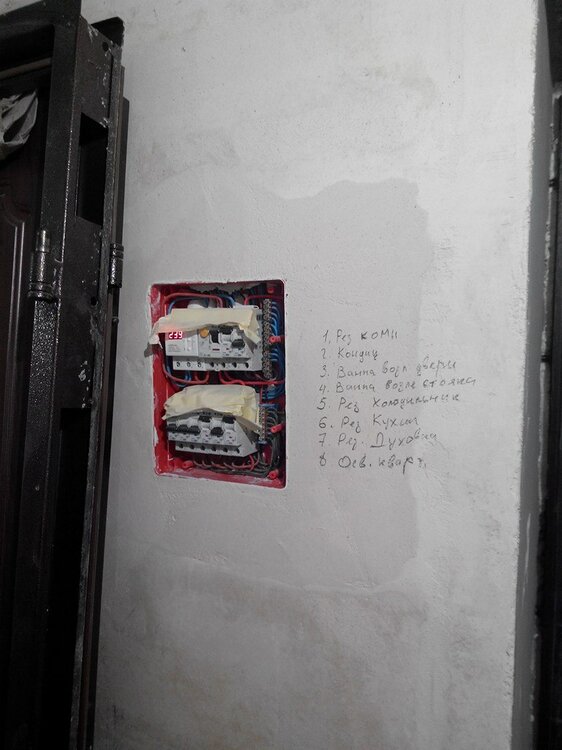 239
1. Рез комн
2. Кондиц
3. Ванна возл двери
4. Ванна возле стояка
5 Рез Холодильник
6. Рез Кухня
7 Рез. Духовка
8 Осв. кварт.